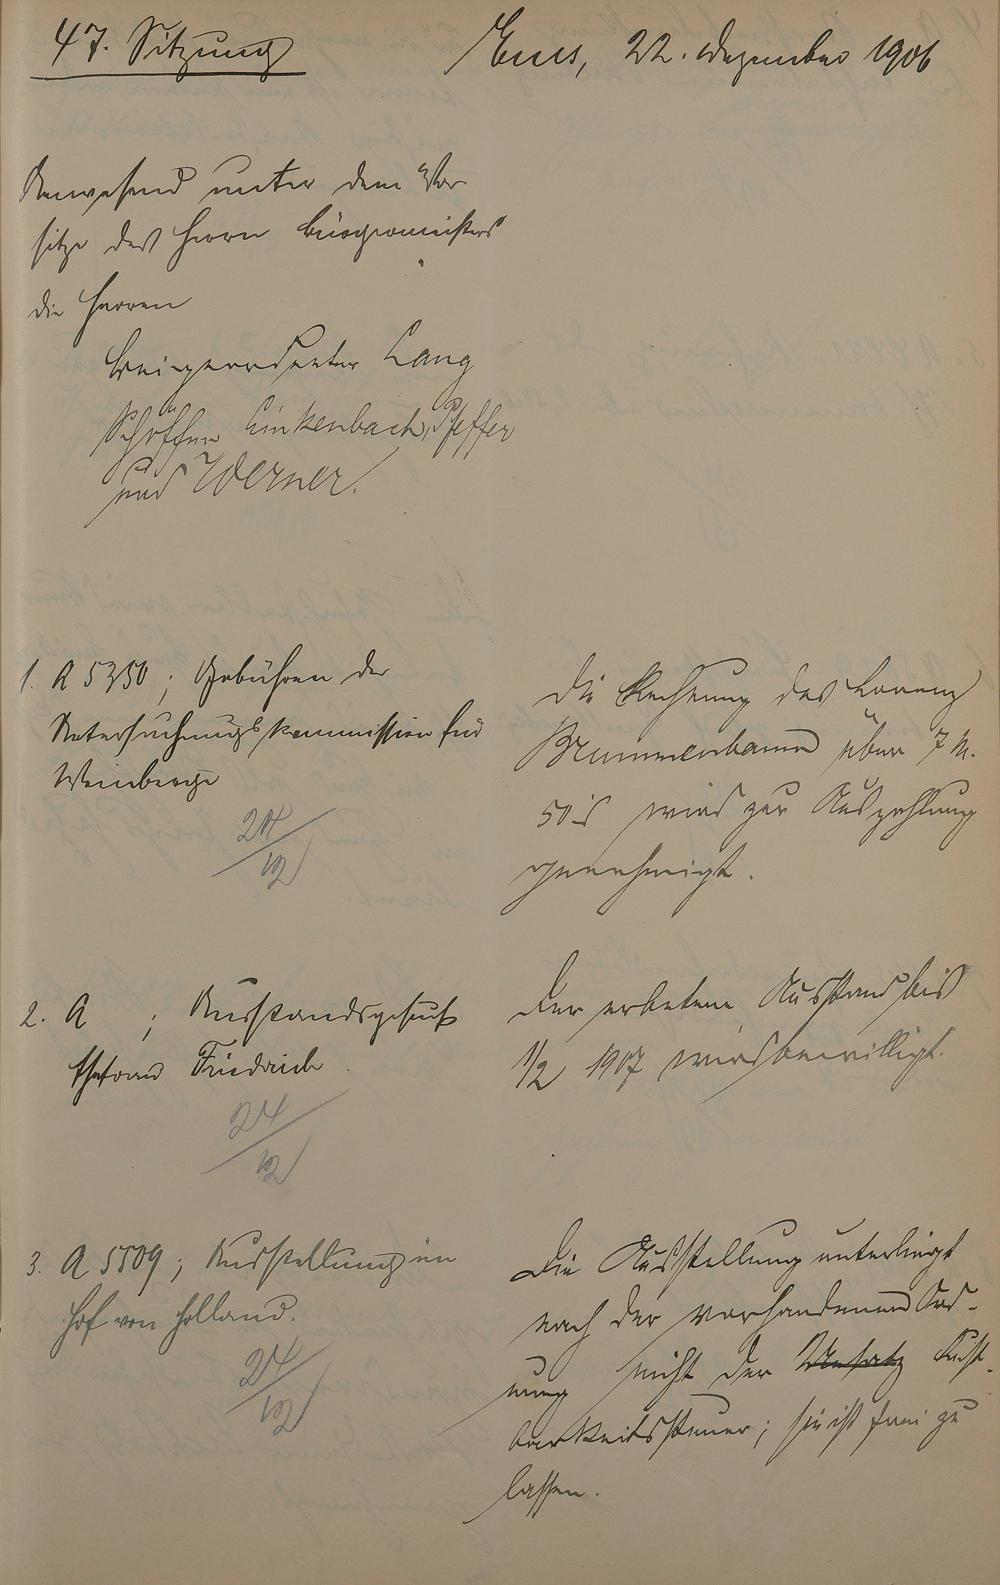 47. Sitzung
Ems, 22. Dezember 1906
Anwesend unter dem Vor-
sitze des Herrn Bürgermeisters
die Herren
Beigeordneter Lang
Schöffen Linkenbach, Pfeffer
und Werner.
1. A 5350; Gebühren der
Untersuchungskommission für
Weinberge
24/12
Die Rechnung des Lorenz
über 7 M.
50 d wird zur Auszahlung
genehmigt.
2. A ; Ausstandsgesuch
Ehefrau Friedrich
24/12
Der erbetene Ausstand bis
1/2 1907 wird bewilligt.
3. A 5509; Ausstellung im
Hof von Holland.
24/12
Die Ausstellung unterliegt
nach der vorhandenen Ord-
nung nicht der Umsatz Lust-
barkeitssteuer; sie ist frei zu
lassen.